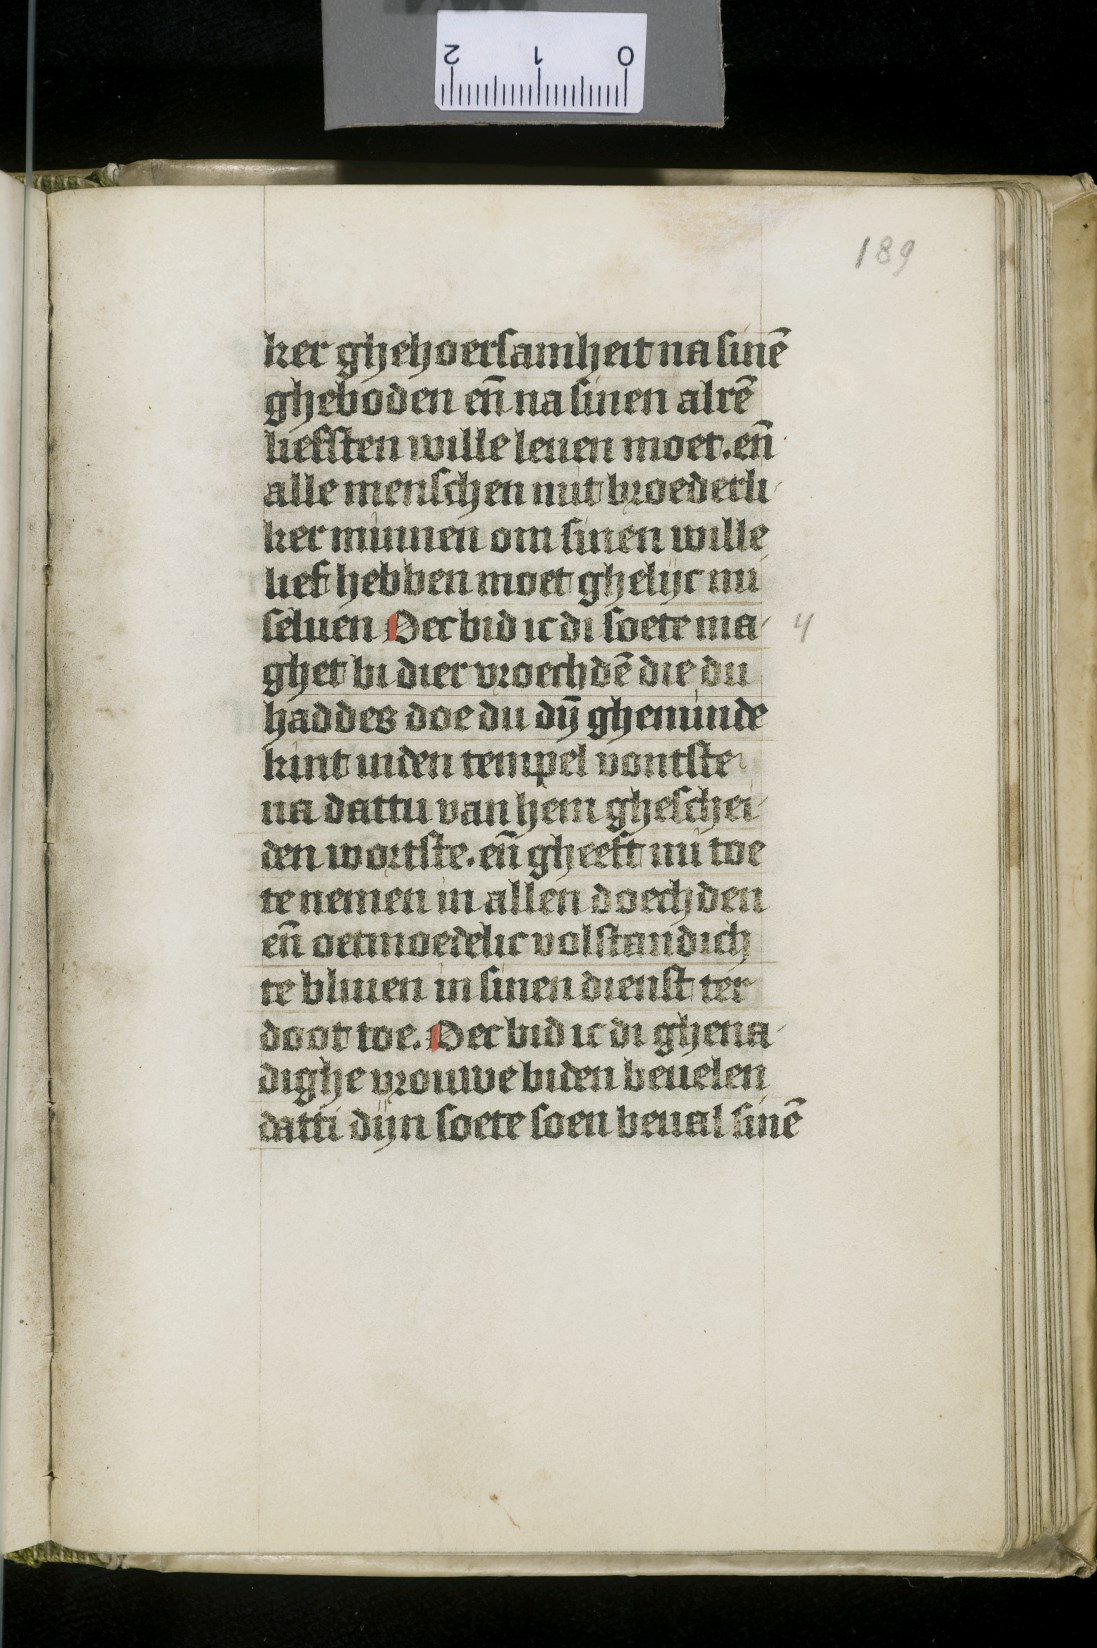 189
ker ghehoersamheit na sinē
gheboden en̄ na sinen alrē
liefsten wille leuen moet. en̄
alle menschen mit broederli
ker minnen om sinen wille
lief hebben moet ghelijc mi
seluen Oec bid ic di soete ma
4
ghet bi dier vroechdē die du
haddes doe du dȳ gheminde
kint inden tempel vontste
na dattu van hem gheschei
den wortste. en̄ gheeft mi toe
te nemen in allen doechden
en̄ oetmoedelic volstandich
te bliuen in sinen dienst ter
doot toe. Oec bid ic di ghena
dighe vrouwe biden beuelen
datti dijn soete soen beual sinē
2 1 0